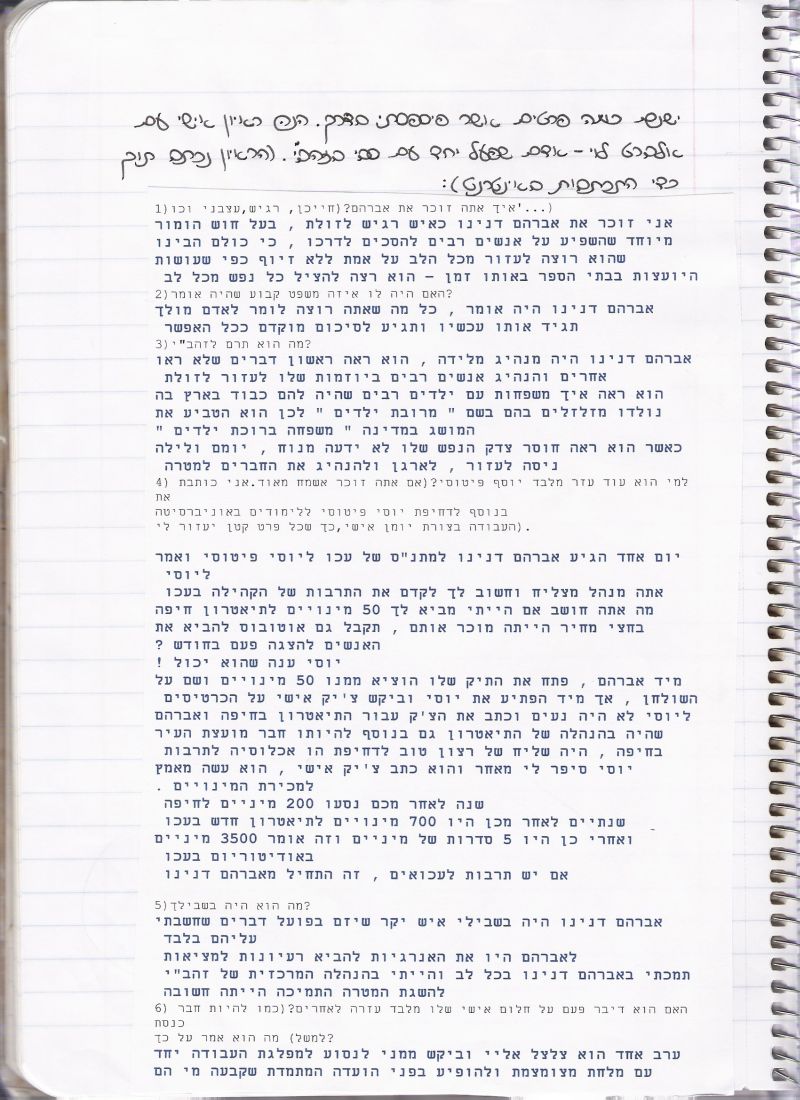 ישנם כמה פרטים אשר פיספסתי בדרך. הנה ראיון אישי עם
אלברט לוי - אדם שפעל יחד עם סבי בזהבי. (הראיון נכתב תוך
כדי התכתבות באינטרנט):
1)איך אתה זוכר את אברהם?(חייכן, רגיש,עצבני וכו'...)
אני זוכר את אברהם דנינו כאיש רגיש לזולת , בעל חוש הומור
מיוחד שהשפיע על אנשים רבים להסכים לדרכו , כי כולם הבינו
שהוא רוצה לעזור מכל הלב על אמת ללא זיוף כפי שעושות
היועצות בבתי הספר באותו זמן – הוא רצה להציל כל נפש מכל לב
2)האם היה לו איזה משפט קבוע שהיה אומר?
אברהם דנינו היה אומר , כל מה שאתה רוצה לומר לאדם מולך
תגיד אותו עכשיו ותגיע לסיכום מוקדם ככל האפשר
3)מה הוא תרם לזהב"י?
אברהם דנינו היה מנהיג מלידה , הוא ראה ראשון דברים שלא ראו
אחרים והנהיג אנשים רבים ביוזמות שלו לעזור לזולת
הוא ראה איך משפחות עם ילדים רבים שהיה להם כבוד בארץ בה
נולדו מזלזלים בהם בשם " מרובת ילדים " לכן הוא הטביע את
המושג במדינה " משפחה ברוכת ילדים "
כאשר הוא ראה חוסר צדק הנפש שלו לא ידעה מנוח , יומם ולילה
ניסה לעזור , לארגן ולהנהיג את החברים למטרה
4) למי הוא עוד עזר מלבד יוסף פיטוסי?(אם אתה זוכר אשמח מאוד.אני כותבת
את
בנוסף לדחיפת יוסי פיטוסי ללימודים באוניברסיטה
העבודה בצורת יומן אישי,כך שכל פרט קטן יעזור לי).
יום אחד הגיע אברהם דנינו למתנ"ס של עכו ליוסי פיטוסי ואמר
ליוסי
אתה מנהל מצליח וחשוב לך לקדם את התרבות של הקהילה בעכו
מה אתה חושב אם הייתי מביא לך 50 מינויים לתיאטרון חיפה
בחצי מחיר הייתה מוכר אותם , תקבל גם אוטובוס להביא את
האנשים להצגה פעם בחודש ?
יוסי ענה שהוא יכול !
מיד אברהם , פתח את התיק שלו הוציא ממנו 50 מינויים ושם על
השולחן , אך מיד הפתיע את יוסי וביקש צ'יק אישי על הכרטיסים
ליוסי לא היה נעים וכתב את הצ'ק עבור התיאטרון בחיפה ואברהם
שהיה בהנהלה של התיאטרון גם בנוסף להיותו חבר מועצת העיר
בחיפה , היה שליח של רצון טוב לדחיפת הו אכלוסיה לתרבות
יוסי סיפר לי מאחר והוא כתב צ'יק אישי , הוא עשה מאמץ
למכירת המינויים .
שנה לאחר מכם נסעו 200 מיניים לחיפה
שנתיים לאחר מכן היו 700 מינויים לתיאטרון חדש בעכו
ואחרי כן היו 5 סדרות של מיניים וזה אומר 3500 מיניים
באודיטוריום בעכו
אם יש תרבות לעכואים , זה התחיל מאברהם דנינו
5)מה הוא היה בשבילך?
אברהם דנינו היה בשבילי איש יקר שיזם בפועל דברים שחשבתי
עליהם בלבד
לאברהם היו את האנרגיות להביא רעיונות למציאות
תמכתי באברהם דנינו בכל לב והייתי בהנהלה המרכזית של זהב"י
להשגת המטרה התמיכה הייתה חשובה
6) האם הוא דיבר פעם על חלום אישי שלו מלבד עזרה לאחרים?(כמו להיות חבר
כנסת
למשל) מה הוא אמר על כך?
ערב אחד הוא צלצל אליי וביקש ממני לנסוע למפלגת העבודה יחד
עם מלחת מצומצמת ולהופיע בפני הועדה המתמדת שקבעה מי הם